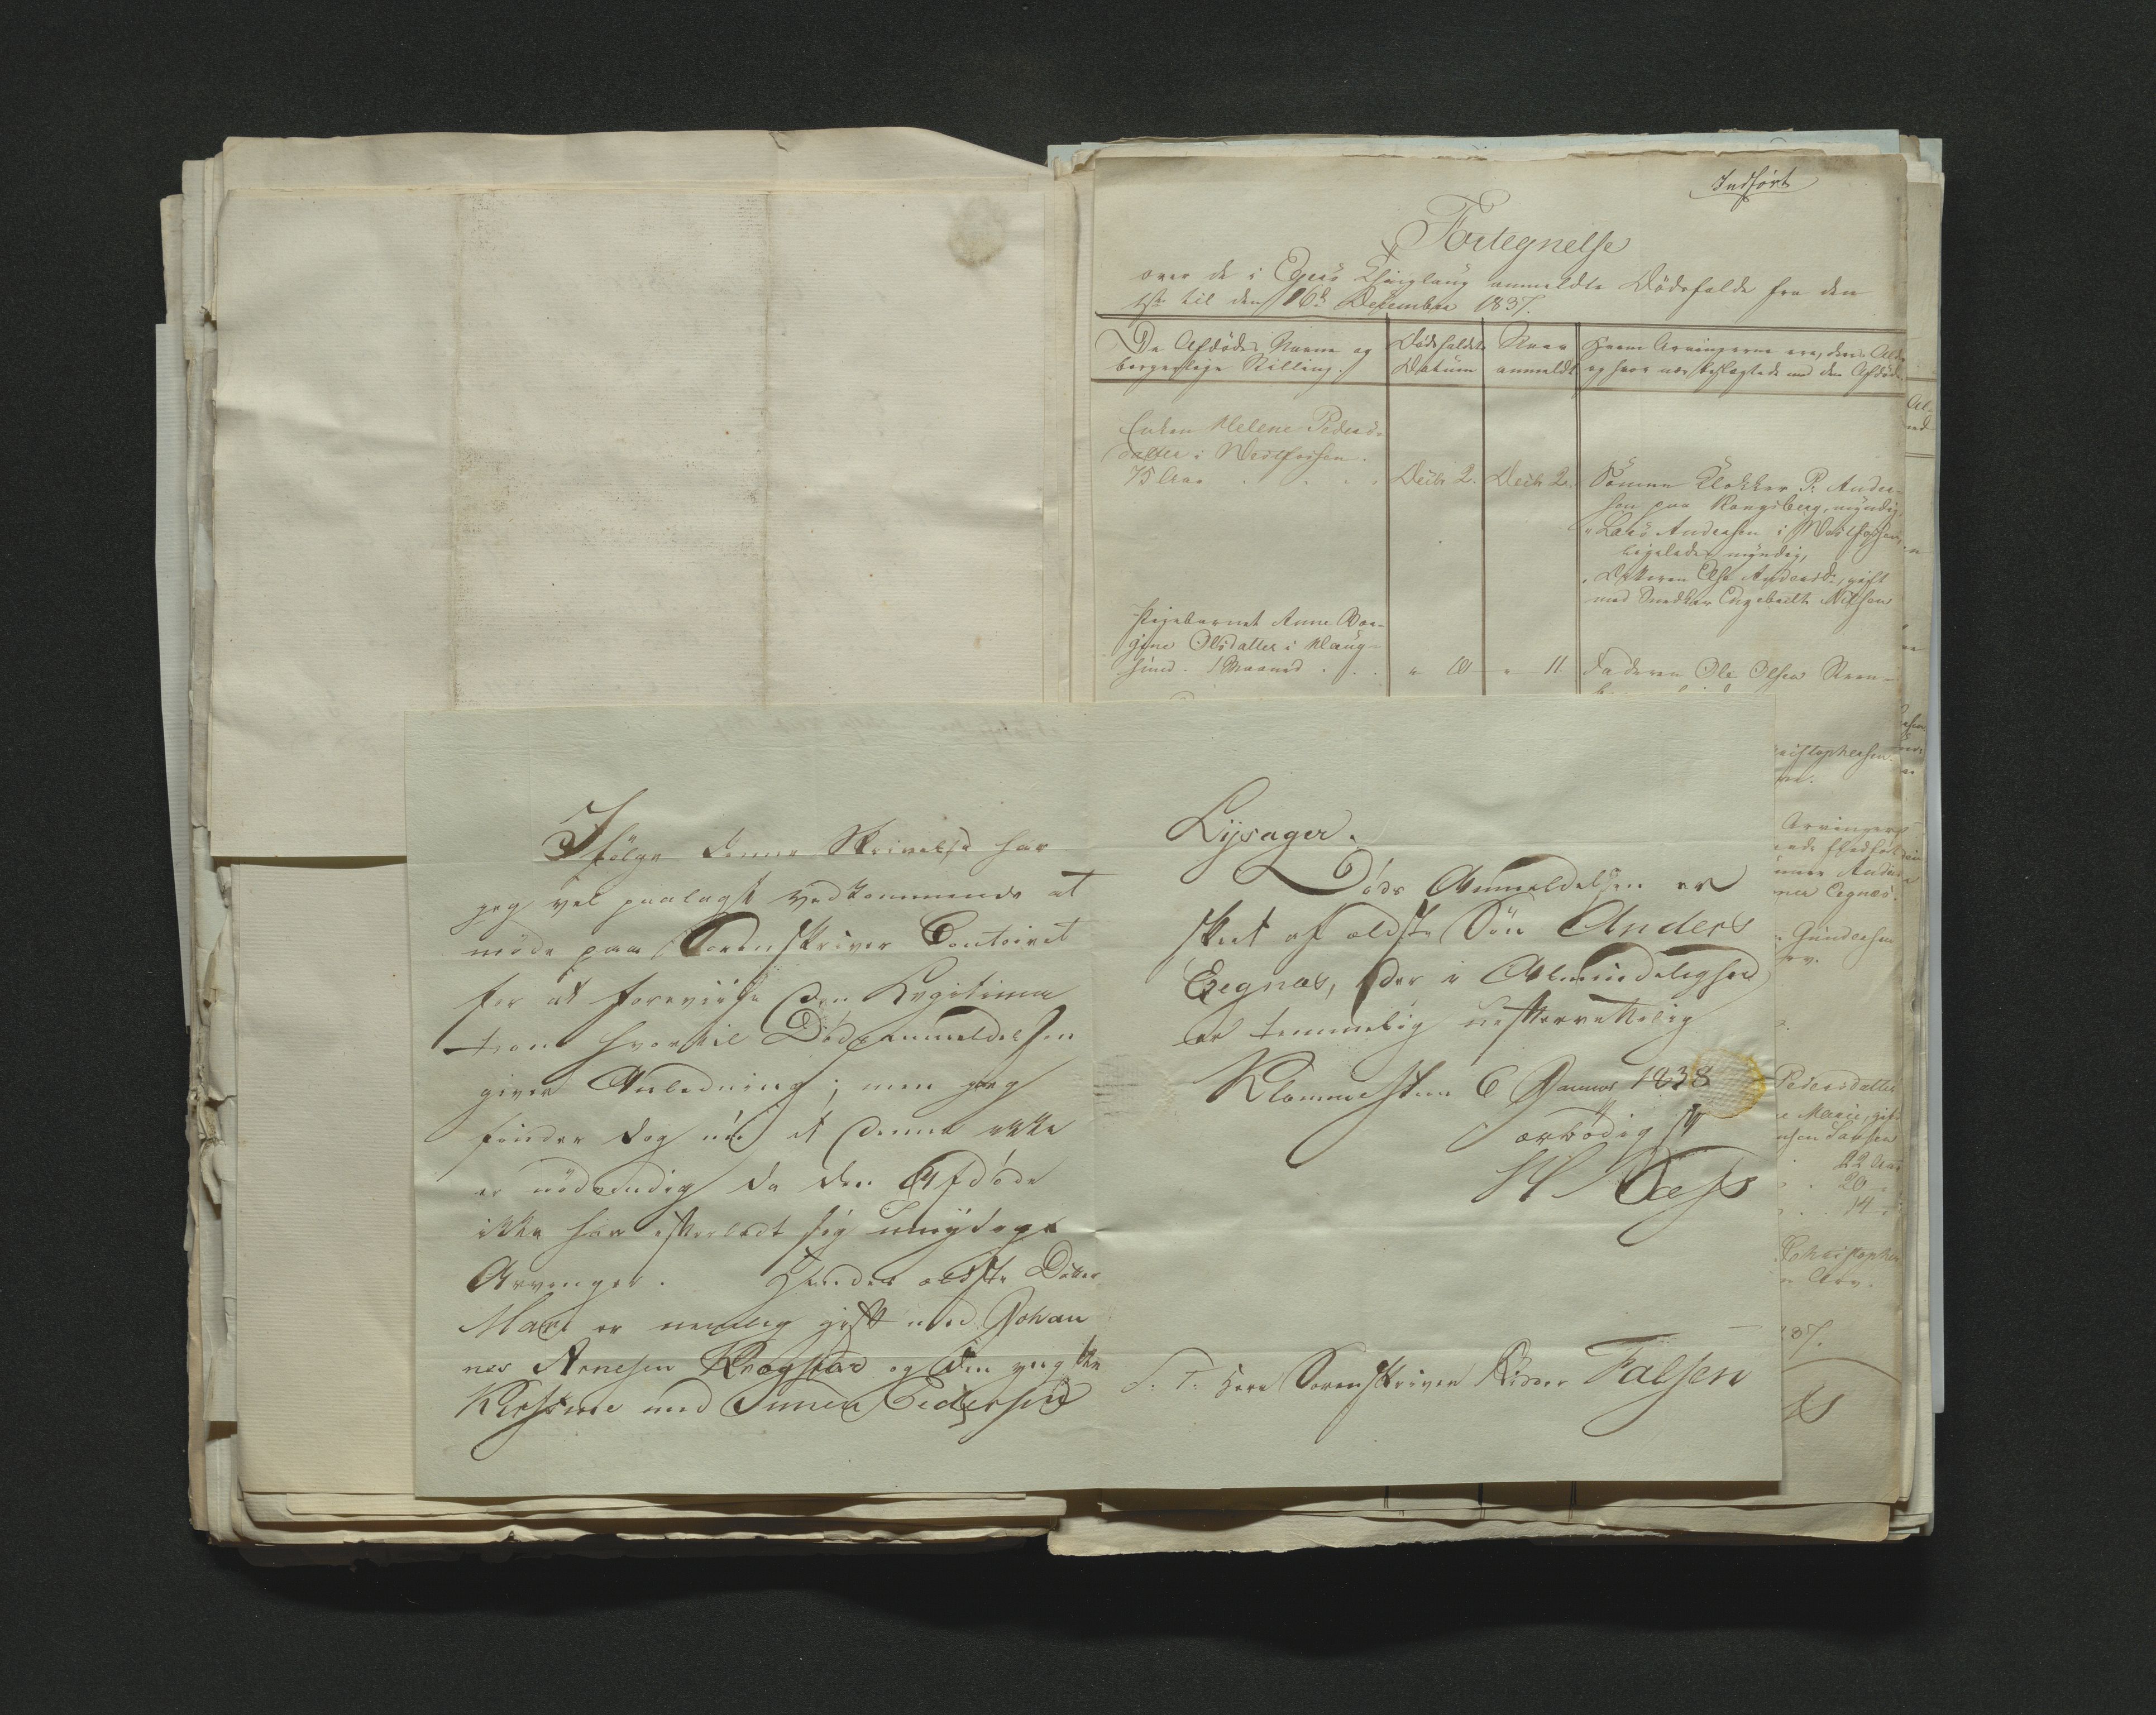 Indført
Fortegnelse
over de i Egers Thinglaug anmeldte Dødsfalde fra den
1ste til den 16de December 1837.
De Afdødes Navne og
borgerlige Stilling.
Dødsfaldets
Datum
Naar
anmeldt
Hvem Arvingerne ere, deres Alder
og hvor nær beslægtede med den Afdøde
Enken Helene Peders-
datter i Westfossen.
75 Aar
Decbr 2.
Decbr 2.
Sønnen Klokker P. Ander-
sen paa Kongsberg, myndig,
" Lars Andersen i Westfossen,
ligeledes myndig,
Datteren Else Andersdr, gift
med Snedker Engebrett Nilsen
Pigebarnet Anne
Olsdatter i Haug-
sund. 1 Maaned
" 10
" 11
Faderen Ole Olsen Steen-
Ifølge denne Skrivelse har
jeg vel paalagt Vedkommende at
møde paa Sorenskriver Contoiret
for at foreviise den Legitima-
tion hvortil Dødsanmeldelsen
giver Anledning; men jeg
finder dog nu at denne ikke
er nødvendig da den Afdøde
ikke har efterladt sig umyndige
Arvinger. Hendes ældste Datter
Mari er nemlig gift med Johan
nes Arnesen Krogstad og den yngste
Kirstine med Simen Pedersen
Lysager.
Døds Anmeldelsen er
skeet af ældste Søn Anders
Eegnæs, der i Almindelighed
er temmelig uefterrettelig
Klommesteen 6 Januar 1838
ærbødigst
S. T. Herr Sorenskriver Ridder Falsen
istophersen
Arvinger
Eegnæs.
Gundersen
Pedersdatter
Marie, gift
Larsen
22 Aar
20
14
Christopher
Arv.
37.